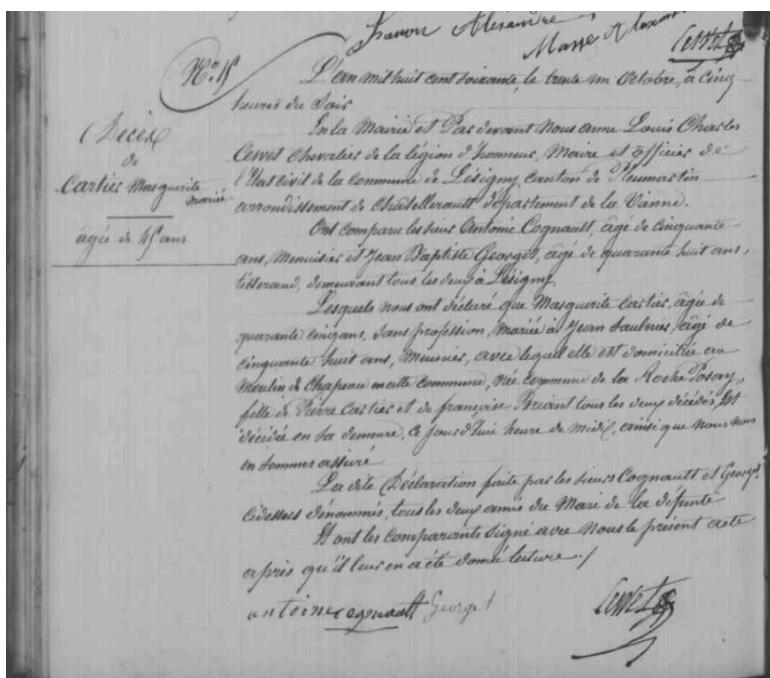 Alexandre
Masse
No. 15
L'an mil huit cent soixante, le trente un Octobre, à cinq
heures du Soir
Décès
de
Cartier Marguerite
mariée
âgée de 45 ans
En la Mairie et Par devant Nous anne Louis Charles
Chevalier de la légion d'honneur, Maire et officier de
l'Etat civil de la Commune de Lésigny, canton de Pleumartin
arrondissement de Chatellerault département de la Vienne.
Ont comparu les sieurs Antoine Cognault, âgé de cinquante
ans, Menuisier et Jean Baptiste Georget, âgé de quarante huit ans,
tisserand, demeurant tous les deux à Lésigny
Lesquels nous ont déclaré que Marguerite Cartier, âgée de
quarante cinq ans, sans profession, mariée à Jean Saulnier, âgé de
cinquante huit ans, Meunier, avec lequel elle est domiciliée au
Moulin de Chapeau en cette commune, née commune de la Roche Posay,
fille de Pierre Cartier et de françoise Briant tous les deux décédés, Est
décédée en sa demeure, ce jourd'hui heure de midi, ainsi que nous nous
en sommes assuré
La dite Déclaration faite par les sieurs Cognault et Georget
cidessus dénommés, tous les deux amis du Mari de la défunte
Et ont les Comparants signé avec Nous le présent acte
après qu'il leur en a été donné lecture ./
antoine cognault Georget